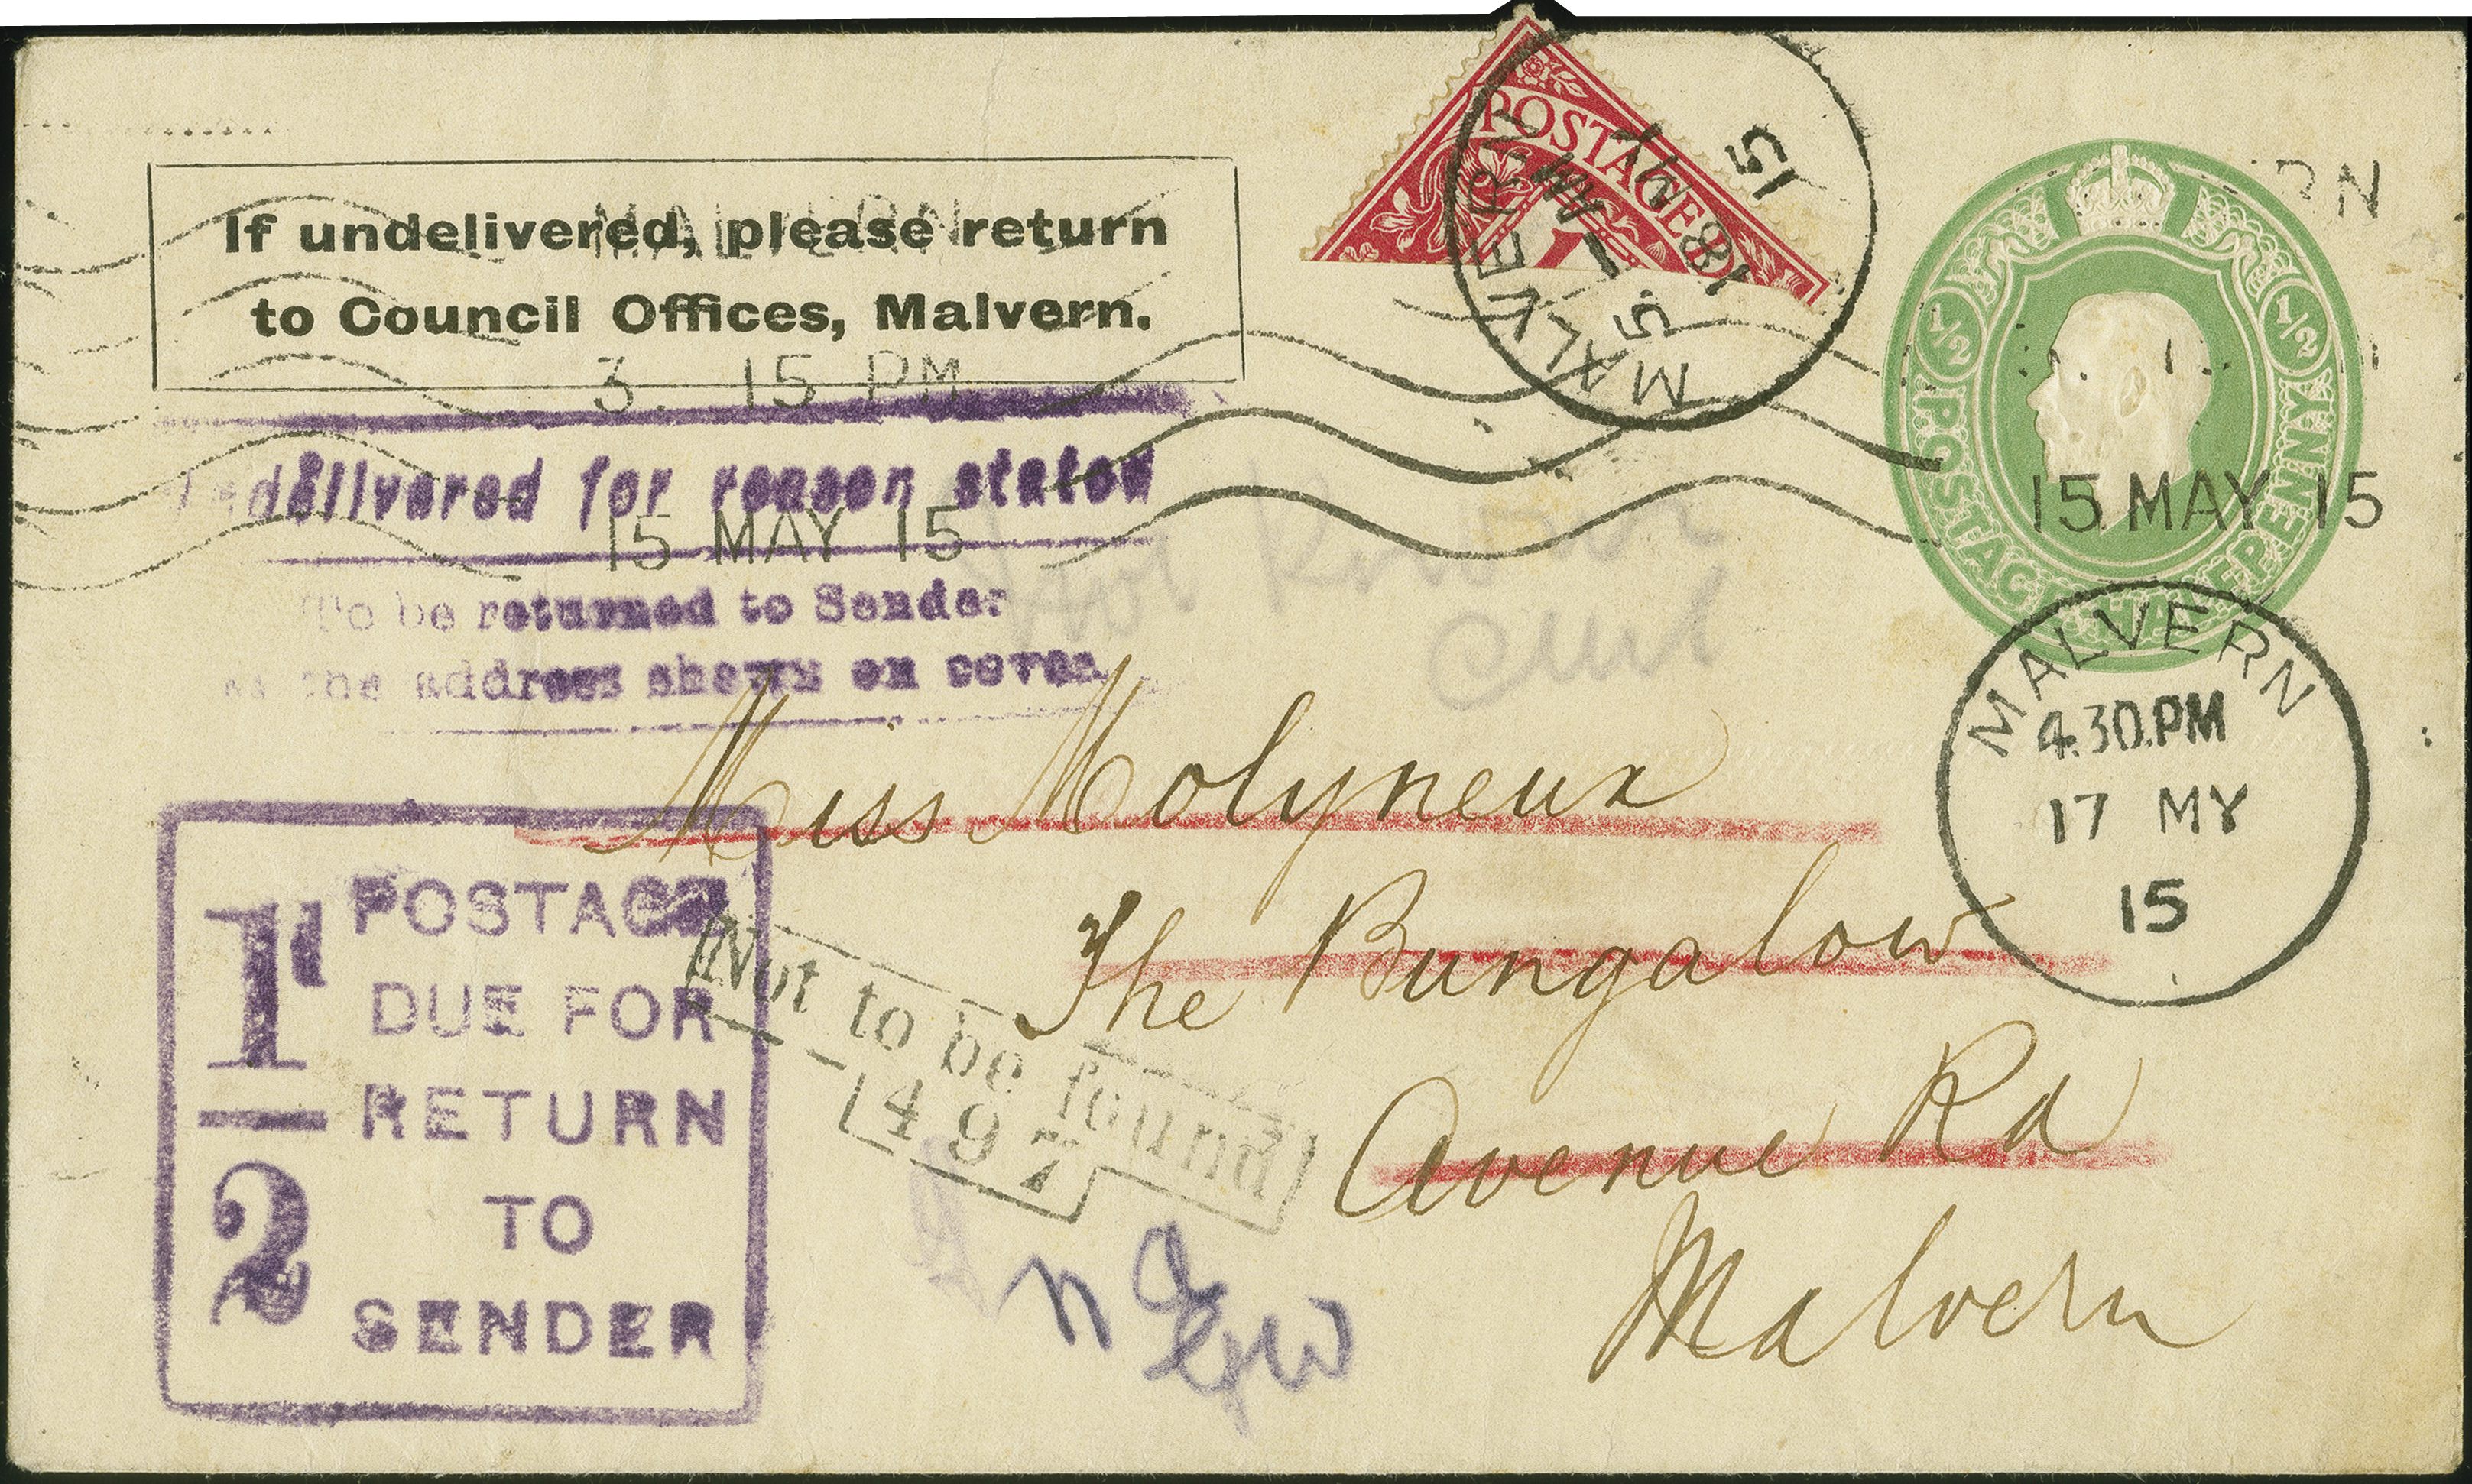 If undelivered, please return
to Council Offices, Malvern.
POSTAGE D
1
MALVERN
5
18 MY
15
½ ½
POSTAGE HALFPENNY
MALVERN
3. 15 PM
15 MAY 15
RN
15 MAY 15
Undelivered for reason stated
To be returned to Sender
at the address shewn on cover
Not Known
MALVERN
4.30.PM
17 MY
15
Miss Molyneux
The Bungalow
Avenue Rd
Malvern
1d/2
POSTAGE
DUE FOR
RETURN
TO
SENDER
Not to be found
497